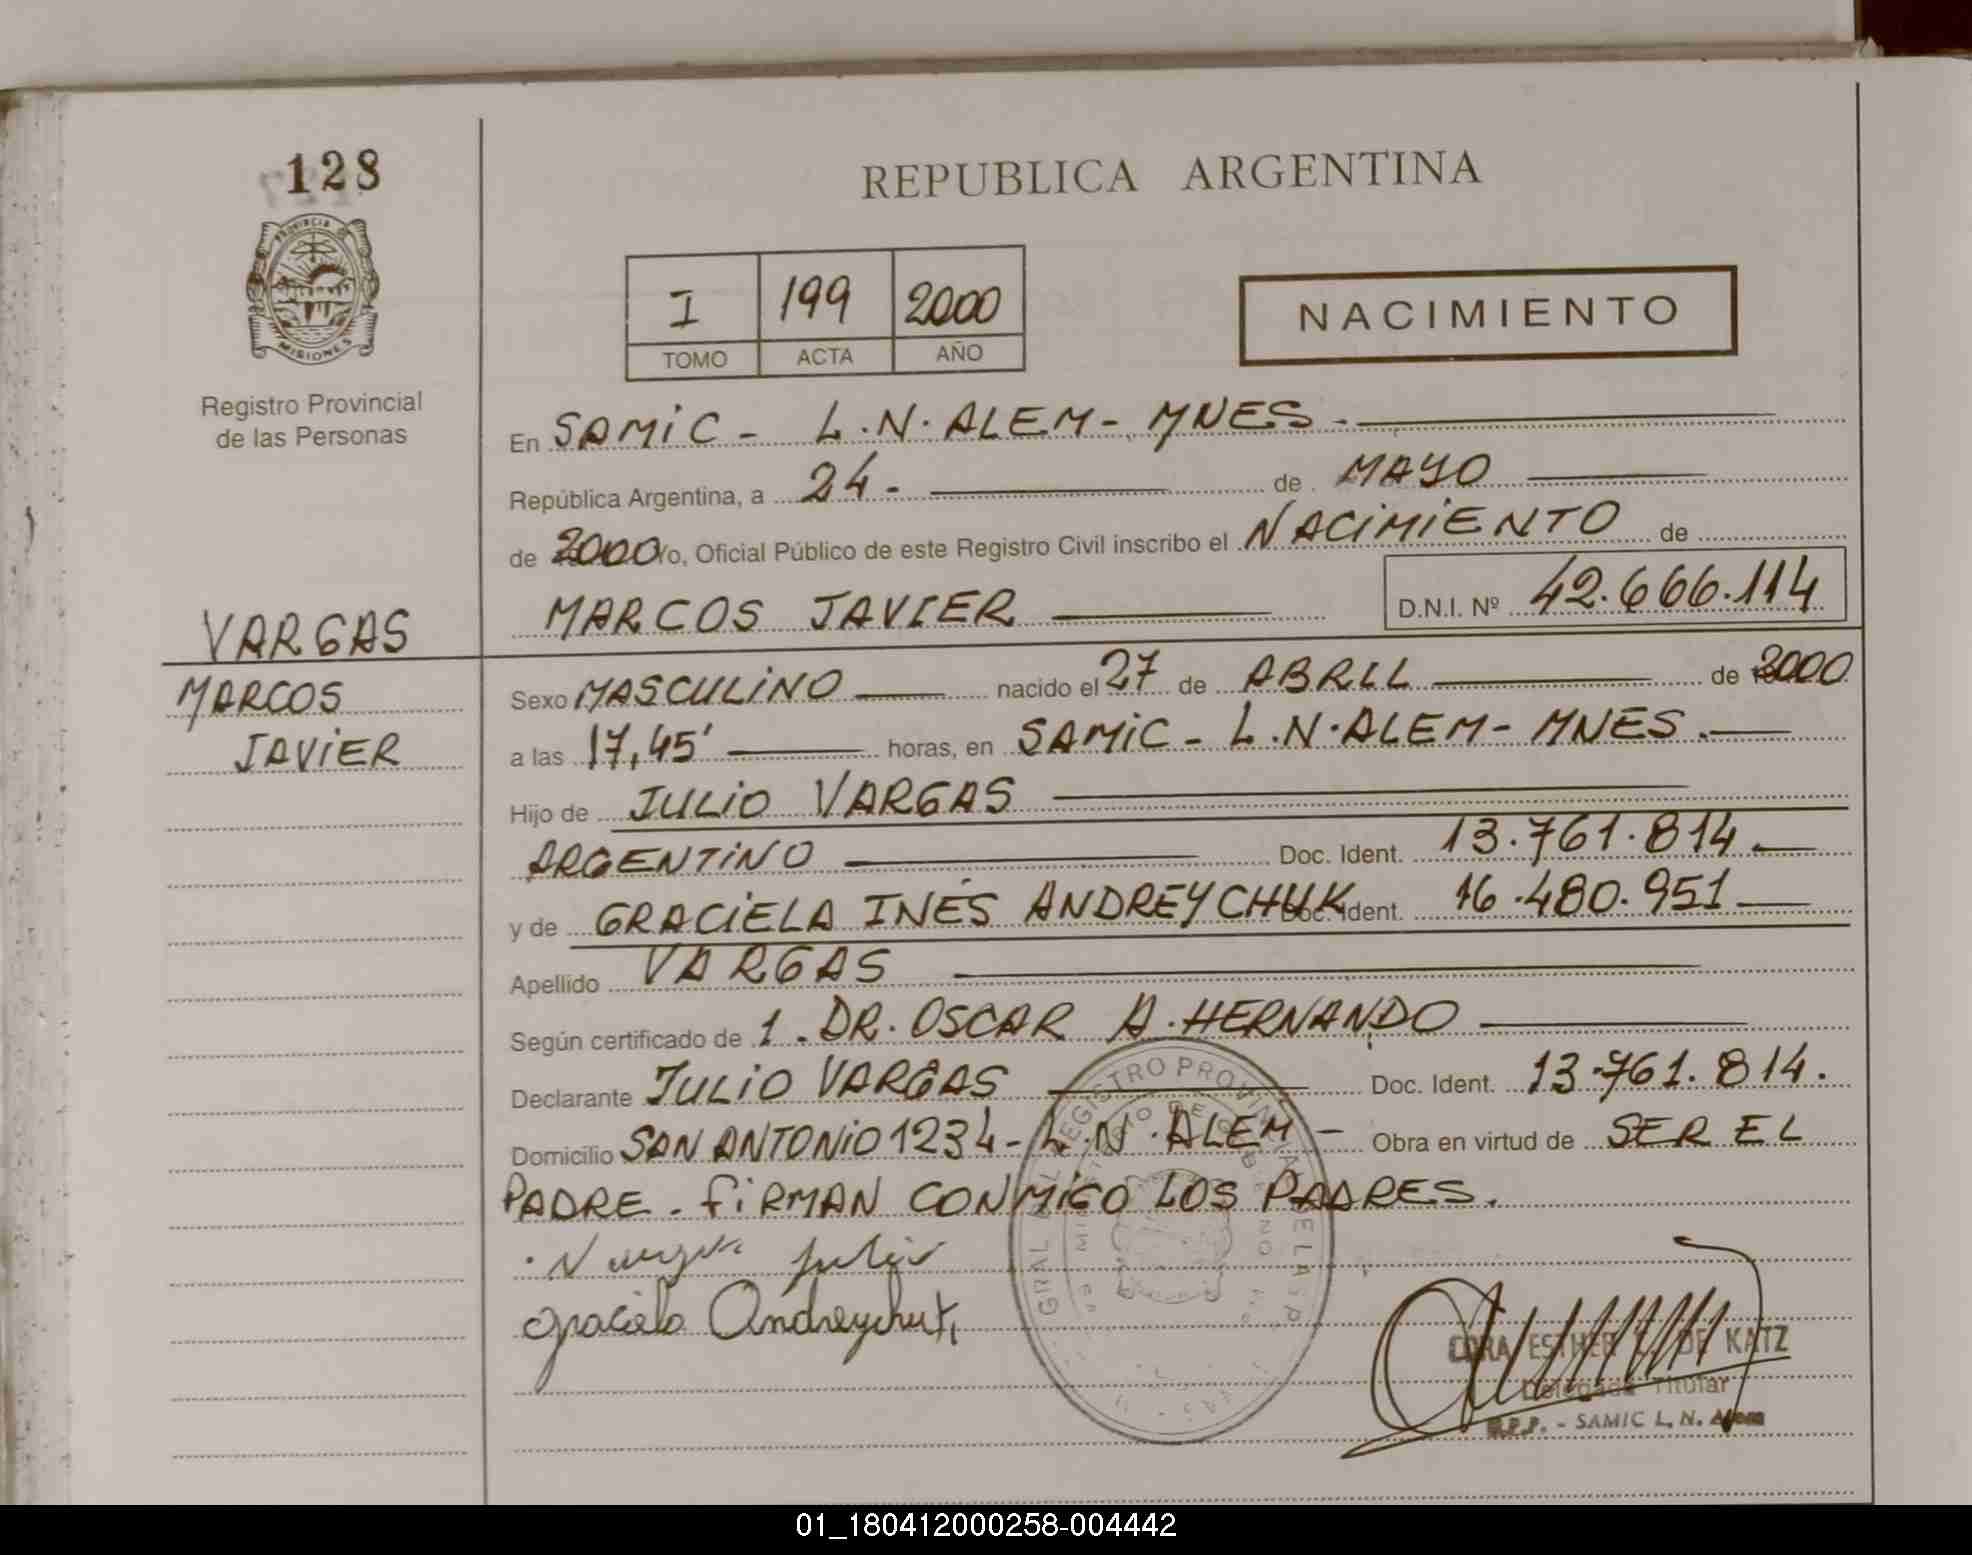 128
PROVINCIA DE
MISIONES
Registro Provincial
de las Personas
VARGAS
MARCOS
JAVIER
REPUBLICA ARGENTINA
I 199 2000
TOMO ACTA AÑO
NACIMIENTO
En SAMIC - L.N. ALEM - MNES.-
República Argentina, a 24.- de MAYO
de 2000 Yo, Oficial Público de este Registro Civil inscribo el NACIMIENTO de
MARCOS JAVIER D.N.I. Nº 42.666.114
Sexo MASCULINO nacido el 27 de ABRIL de 2000
a las 17,45' horas, en SAMIC - L.N. ALEM - MNES.-
Hijo de JULIO VARGAS
ARGENTINO Doc. Ident. 13.761.814.-
y de GRACIELA INÉS ANDREYCHUK Doc. Ident. 16.480.951-
Apellido VARGAS
Según certificado de 1. DR. OSCAR A. HERNANDO
Declarante JULIO VARGAS Doc. Ident. 13.761.814.
Domicilio SAN ANTONIO 1234 - L.N. ALEM - Obra en virtud de SER EL
PADRE. FIRMAN CONMIGO LOS PADRES.
Vargas Julio
Graciela Andreychuk
REGISTRO PROVINCIAL DE LAS P
CORA ESTHER DE KATZ
Delegada Titular
R.P.P. - SAMIC L. N. Alem
01_180412000258-004442